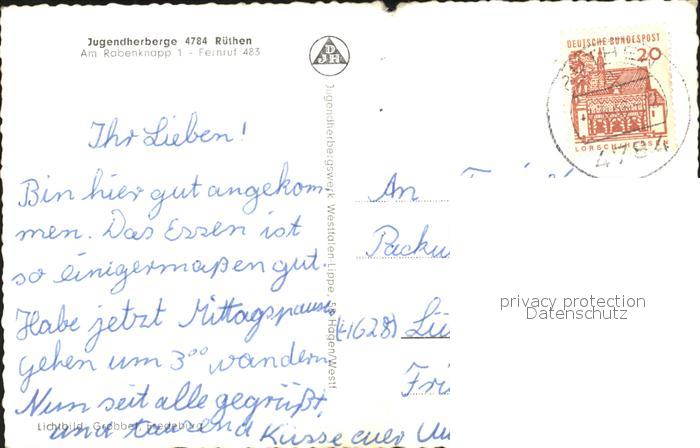 Jugendherberge 4784 Rüthen
Am Rabenknapp 1 - Fernruf 483
DJH
DEUTSCHE BUNDESPOST
20
LORSCH/HESSEN
4784
Jugendherbergswerk Westfalen-Lippe, 58 Hagen/Westf
Ihr Lieben!
Bin hier gut angekom-
men. Das Essen ist
so einigermaßen gut.
Habe jetzt Mittagspause
gehen um 3⁰⁰ wandern.
Nun seit alle gegrüßt,
und tausend Küsse euer
An
Packu
(4628) Lü
Fri
privacy protection
Datenschutz
Lichtbild Grobbel, Fredeburg